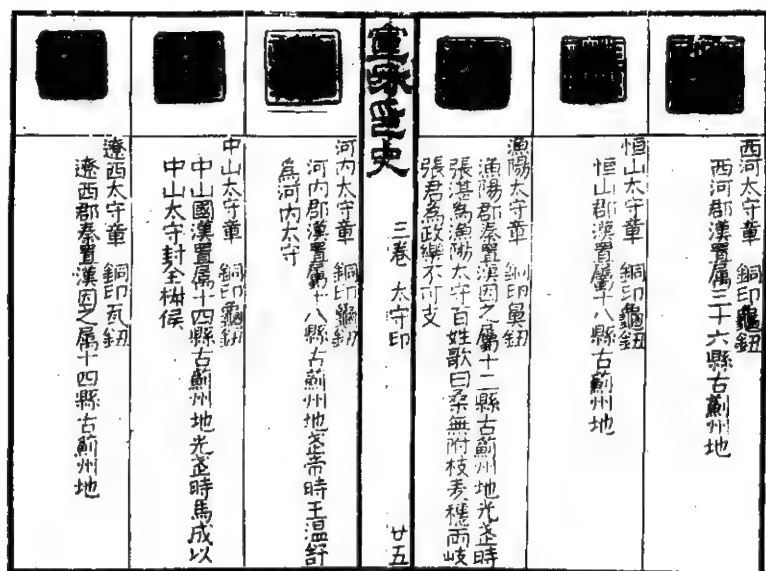 西河太守章　銅印龜鈕
西河郡漢置屬三十六縣古薊州地
恒山太守章　銅印龜鈕
恒山郡漢置屬十八縣古薊州地
漁陽太守章　銅印鼻鈕
漁陽郡秦置漢因之屬十二縣古薊州地光武時
張堪為漁陽太守百姓歌曰桑無附枝麦穗兩岐
張君為政樂不可支
宣和印史
三卷　太守印
廿五
河内太守章　銅印龜鈕
河内郡漢置屬十八縣古薊州地武帝時王温舒
為河内太守
中山太守章　銅印龜鈕
中山國漢置屬十四縣古薊州地光武時馬成以
中山太守封全椒侯
遼西太守章　銅印瓦鈕
遼西郡秦置漢因之屬十四縣古薊州地